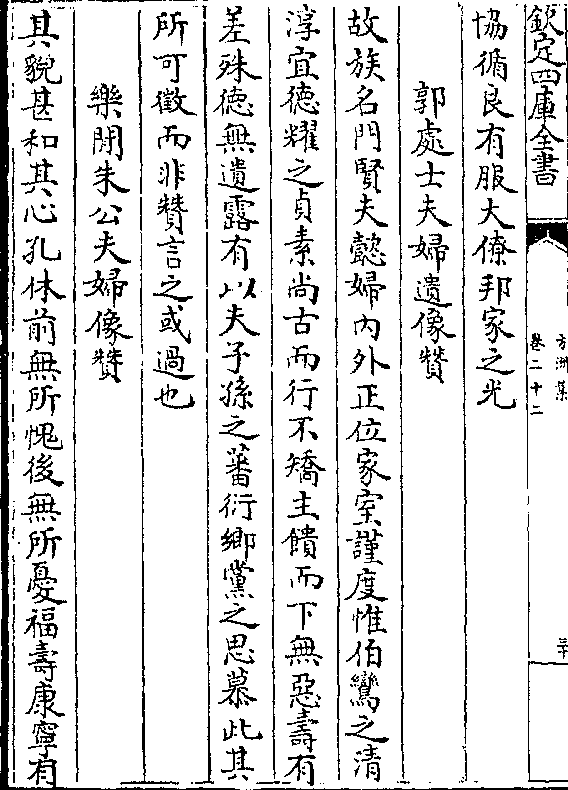 欽定四庫全書
方洲集
卷二十二
三十
協循良有服大僚邦家之光
郭處士夫婦遺像贊
故族名門賢夫懿婦内外正位家室謹度惟伯鸞之清
淳宜德耀之貞素尚古而行不矯主饋而下無惡壽有
差殊德無遺露有以夫子孫之蕃衍鄉黨之思慕此其
所可徵而非贊言之或過也
樂閒朱公夫婦像贊
其貎甚和其心孔休前無所愧後無所憂福壽康寧有